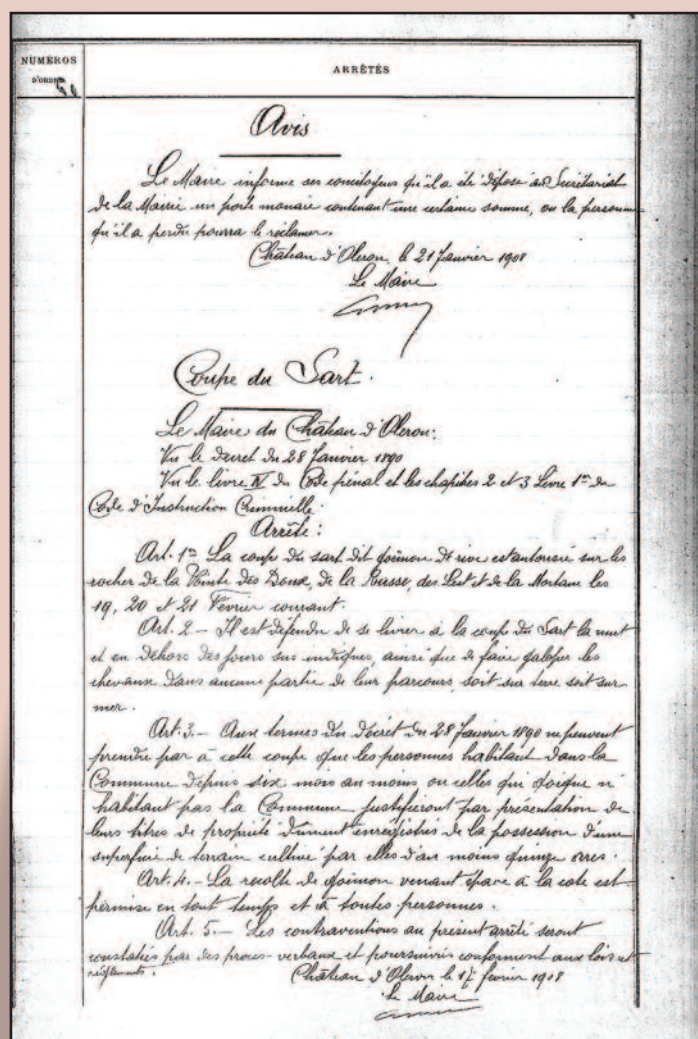 NUMEROS
D'ORDRE
ARRÊTÉS
Avis
Le Maire informe ses concitoyens qu'il a été déposé au Secrétariat
de la Mairie un porte monaie contenant une certaine somme, ou la personne
qu'il a perdu pourra le réclamer.
Château d'Oleron, le 21 Janvier 1908
Le Maire
Coupe du Sart.
Le Maire du Château d'Oleron:
Vu le decret du 28 Janvier 1890
Vu le livre IV du Code pénal et les chapitres 2 et 3 Livre 1er du
Code d'Instruction Criminelle:
Arrête:
Art. 1er La coupe du sart dit goëmon de rive est autorisée sur les
rocher de la Pointe des Doux, de la Basse, des et de la Mortane les
19, 20 et 21 Février courant.
Art. 2 - Il est défendu de se livrer à la coupe du Sart la nuit
et en dehors des jours sus indiqués, ainsi que de faire galoper les
chevaux dans aucune partie de leur parcours, soit sur terre soit sur
mer.
Art. 3. - Aux termes du décret du 28 Janvier 1890 ne peuvent
prendre par à cette coupe que les personnes habitant dans la
Commune depuis six mois au moins ou celles qui quoique n'
habitant pas la Commune justifieront par présentation de
leurs titres de propriété dument enregistrés de la possession d'une
superficie de terrain cultivé par elles d'au moins quinze ares.
Art. 4. - La recolte de goëmon venant épave à la cote est
permise en tout temps et à toutes personnes.
Art. 5. - Les contraventions au présent arrêté seront
constatées par des procès-verbaux et poursuivis conforment aux lois et
règlements.
Château d'Oleron le 17 février 1908
Le Maire